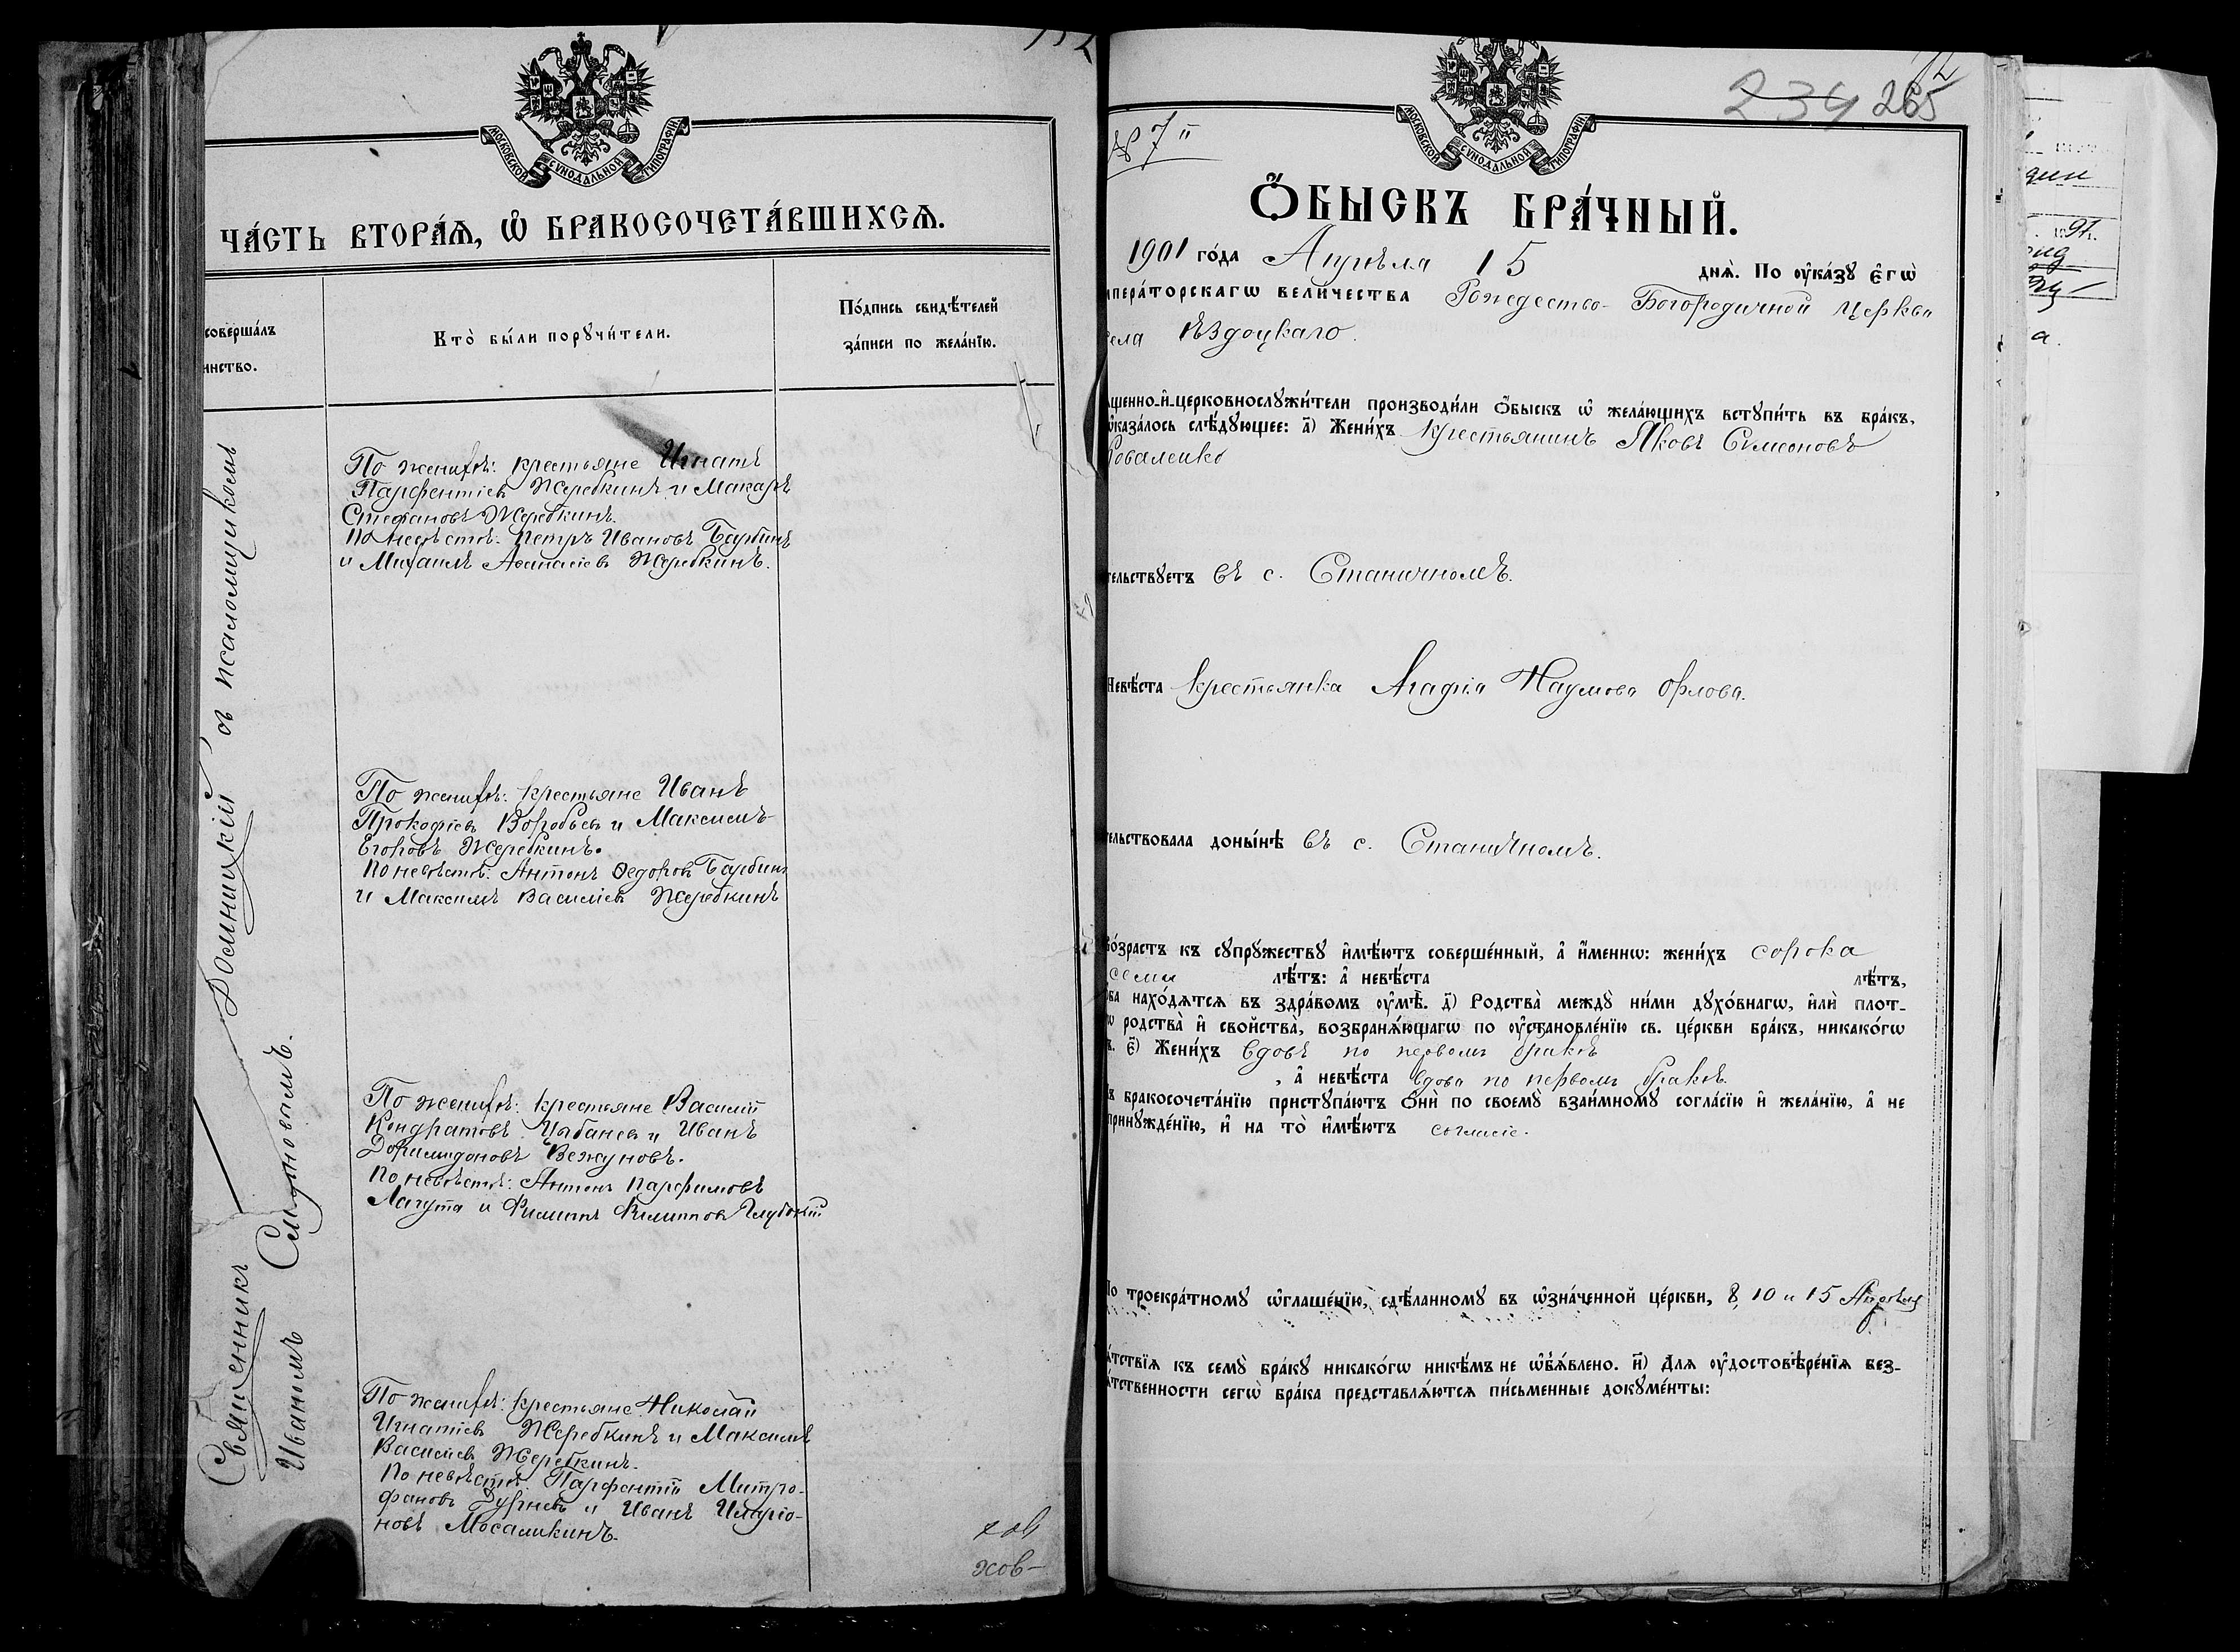 МОСКОВСКОЙ СѴНОДАЛЬНОЙ ТИПОГРАФІИ
ЧА́СТЬ ВТОРА́Ѧ, Ѡ҆ БРАКОСОЧЕТА́ВШИХСѦ.
соверша́лъ
инство.
Кто̀ бы́ли порꙋчи́тели.
По́дпись свидѣ́телей
за́писи по жела́нїю.
По женихѣ: крестьяне Игнатъ
Парфентіевъ Жеребкинъ и Макаръ
Стефановъ Жеребкинъ.
По невѣстѣ: Петръ Ивановъ Барбинъ
и Михаилъ Аѳанасіевъ Жеребкинъ.
По женихѣ: крестьяне Иванъ
Прокофіевъ Воробьевъ и Максимъ
Егоровъ Жеребкинъ.
По невѣстѣ: Антонъ Ѳедоровъ Барбинъ
и Максимъ Василіевъ Жеребкинъ
По женихѣ: крестьяне Василій
Кондратовъ Цыбаневъ и Иванъ
Доримедоновъ Вежуновъ.
По невѣстѣ: Антонъ Парфимовъ
Лагута и Филиппъ Филипповъ Глубокій
По женихѣ: крестьяне Николай
Игнатіевъ Жеребкинъ и Максимъ
Василіевъ Жеребкинъ.
По невѣстѣ: Парфентій Митро-
фановъ и Иванъ Иларіо-
новъ Мосалыкинъ.
Священникъ Доминицкій съ псаломщикомъ
Иваномъ Смирновымъ.
хов-
234 265
№ 7й
МОСКОВСКОЙ СѴНОДАЛЬНОЙ ТИПОГРАФІИ
Ѻ҆БЫСКЪ БРА́ЧНЫЙ.
1901 го́да Апрѣля 15 днѧ̀. По ᲂу҆ка́зꙋ є҆гѡ̀
мпера́торскагѡ вели́чества Рождество-Богородичной церкви
села Ѣздоцкаго.
щенно-и҆-церковнослꙋжи́тели производи́ли ѻ҆́быскъ ѡ҆ жела́ющихъ встꙋпи́ть въ бра́къ,
ѡ҆каза́лось слѣ́дꙋющее: а҃) Жени́хъ крестьянинъ Яковъ Симеоновъ
Коваленко
тельствꙋетъ въ с. Станичномъ.
Невѣ́ста крестьянка Агафія Наумова Орлова.
тельствовала доны́нѣ въ с. Станичномъ.
Во́зрастъ къ сꙋпрꙋжествꙋ и҆мѣ́ютъ соверше́нный, а҆ и҆́менно: жени́хъ сорока
семи лѣ́тъ: а҆ невѣ́ста лѣ́тъ,
ба нахо́дѧтсѧ въ здра́вомъ ᲂу҆мѣ̀. д҃) Родства̀ междꙋ̀ ни́ми дꙋхо́внагѡ, и҆лѝ плот-
ѡ родства̀ и҆ сво́йства, возбранѧ́ющагѡ по ᲂу҆становле́нїю св. це́ркви бра́къ, никако́гѡ
ъ. є҃) Жени́хъ вдовъ по первомъ бракѣ
, а҆ невѣ́ста вдова по первомъ бракѣ.
ъ бракосочета́нїю пристꙋпа́ютъ ѻ҆нѝ по своемꙋ̀ взаи́мномꙋ согла́сїю и҆ жела́нїю, а҆ не
принꙋжде́нїю, и҆ на то̀ и҆мѣ́ютъ согласіе.
По троекра́тномꙋ ѡ҆глаше́нїю, сдѣ́ланномꙋ въ ѡ҆зна́ченной це́ркви, 8, 10 и 15 Апрѣля
а́тствїѧ къ семꙋ̀ бра́кꙋ никако́гѡ никѣ́мъ не ѡ҆бъѧ́влено. и҃) Для ᲂу҆достовѣре́нїѧ без-
а́тственности сегѡ̀ бра́ка представлѧ́ютсѧ пи́сьменные докꙋме́нты: